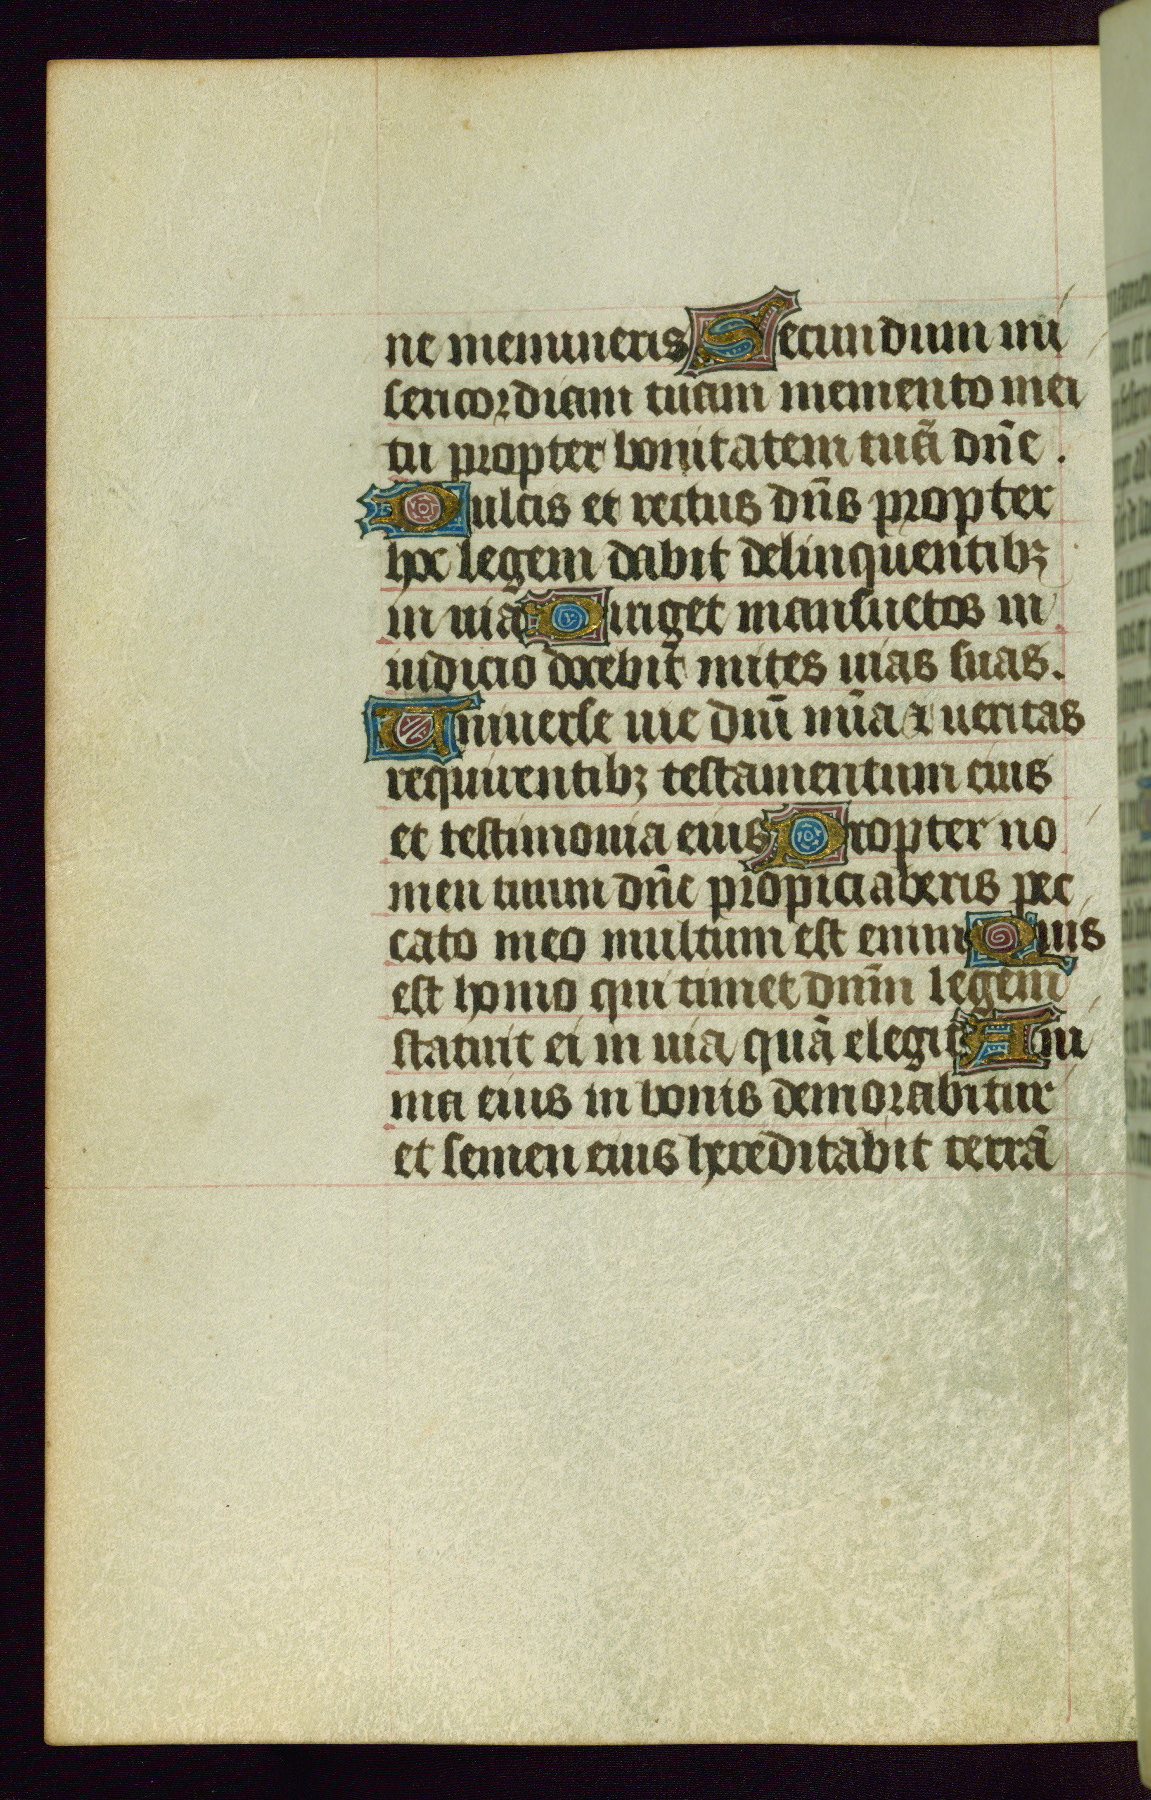 ne memineris Secundum mi
sericordiam tuam memento mei
tu propter bonitatem tuā dn̄e .
Dulcis et rectus dn̄s propter
hoc legem dabit delinquentibꝫ
in uia Diriget mansuetos in
iudicio docebit mites uias suas.
Uniuerse uie dn̄i mīa ⁊ ueritas
requirentibꝫ testamentum eius
et testimonia eius Propter no
men tuum dn̄e propiciaberis pec
cato meo multum est enim Quis
est homo qui timet dnm̄ legem
statuit ei in uia quā elegit Ani
ma eius in bonis demorabitur
et semen eius hereditabit terrā